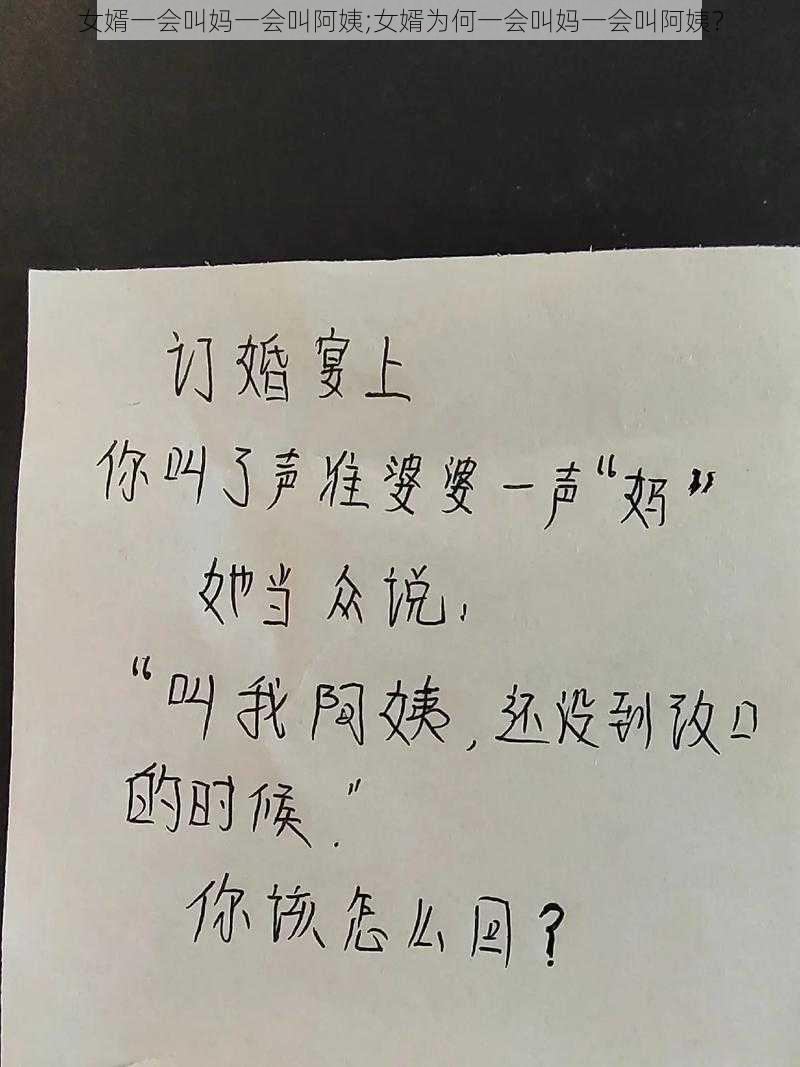 女婿一会叫妈一会叫阿姨;女婿为何一会叫妈一会叫阿姨？
订婚宴上
你叫了声准婆婆一声“妈”
她当众说，
“叫我阿姨，还没到改口
的时候.”
你该怎么回？